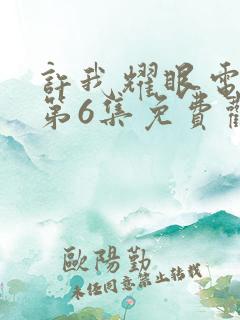 許我耀眼電
第6集免費
歐陽勤
未任同意禁止轉載